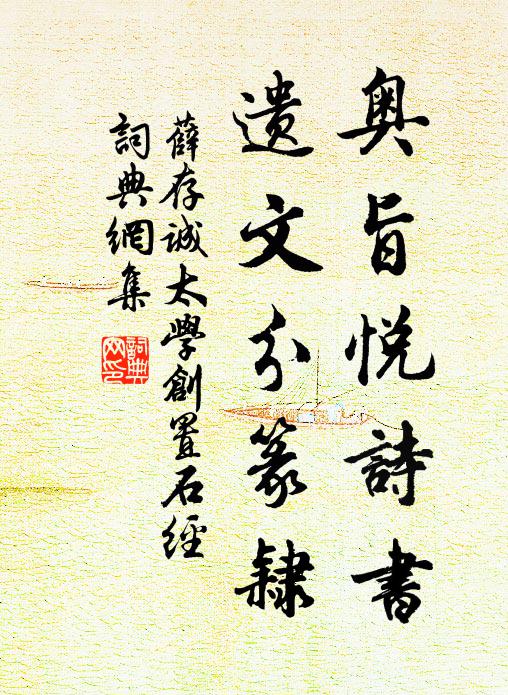 奥旨悦詩書
遗文分篆隸
薛存诚太學創置石經
詞典網集
詞典
网印